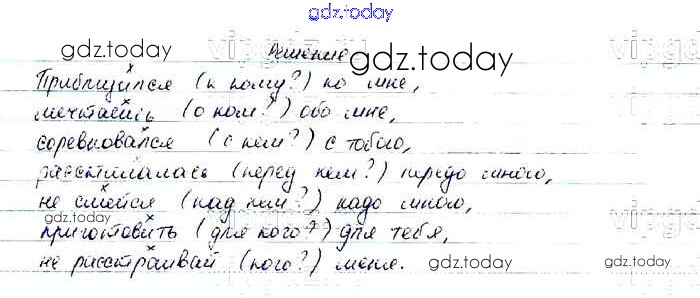 gdz.today
Решение
gdz.today
gdz.today
Приблизился (к кому?) ко мне,
мечтаешь (о ком?) обо мне,
соревновался (с кем?) с тобою,
расстилалась (перед кем?) передо мною,
не смейся (над кем?) надо мною,
gdz.today
приготовить (для кого?) для тебя,
не расстраивай (кого?) меня.
gdz.today
gdz.today